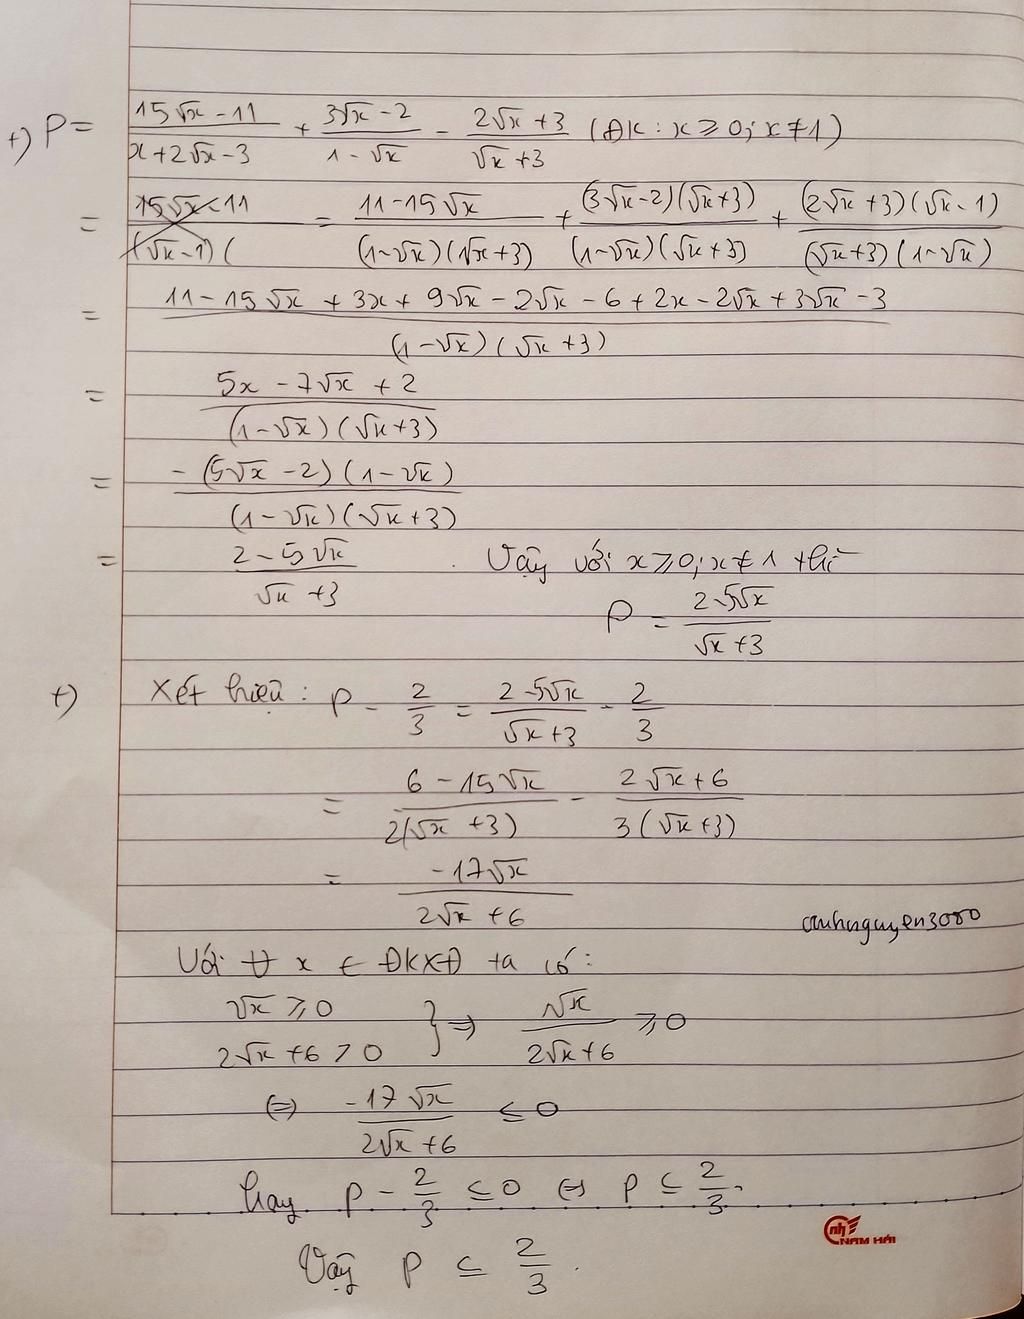 +) P = (15√x - 11)/(x + 2√x - 3) + (3√x - 2)/(1 - √x) - (2√x + 3)/(√x + 3) (ĐK: x ≥ 0; x ≠ 1)
= (15√x - 11)/((√x - 1)( = (11 - 15√x)/((1 - √x)(√x + 3)) + ((3√x - 2)(√x + 3))/((1 - √x)(√x + 3)) + ((2√x + 3)(√x - 1))/((√x + 3)(1 - √x))
= (11 - 15√x + 3x + 9√x - 2√x - 6 + 2x - 2√x + 3√x - 3)/((1 - √x)(√x + 3))
= (5x - 7√x + 2)/((1 - √x)(√x + 3))
= (-(5√x - 2)(1 - √x))/((1 - √x)(√x + 3))
= (2 - 5√x)/(√x + 3) . Vậy với x ≥ 0; x ≠ 1 thì
P = (2 - 5√x)/(√x + 3)
+) Xét hiệu: P - 2/3 = (2 - 5√x)/(√x + 3) - 2/3
= (6 - 15√x)/(2(√x + 3)) - (2√x + 6)/(3(√x + 3))
= (-17√x)/(2√x + 6)
anhnguyen3000
Với ∀ x ∈ ĐKXĐ ta có:
√x ≥ 0
2√x + 6 > 0 } ⇒ √x/(2√x + 6) ≥ 0
⇔ (-17√x)/(2√x + 6) ≤ 0
hay P - 2/3 ≤ 0 ⇔ P ≤ 2/3.
nh NAM HẢI
Vậy P ≤ 2/3.